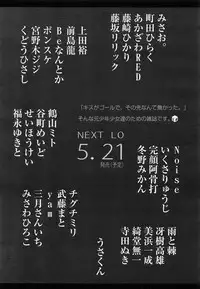 みさお。
町田ひらく
あかざわRED
藤崎ひかり
藤坂リリック
上田裕
前島龍
Beなんとか
ポンスケ
宮野木ジジ
くどうひさし
「キスがゴールで、その先なんて無かった。」
そんな元少年少女達のための雑誌です。
NEXT LO
5.21
発売(予定)
鶴山ミト
谷町めいど
せいほうけい
福永ゆきと
Noise
いくさりゅうじ
完顔阿骨打
冬野みかん
チグチミリ
武藤まと
yam
三月さんいち
みさわひろこ
雨と棘
冴樹高雄
美浜一成
綾堂無一
寺田ぬき
うさくん